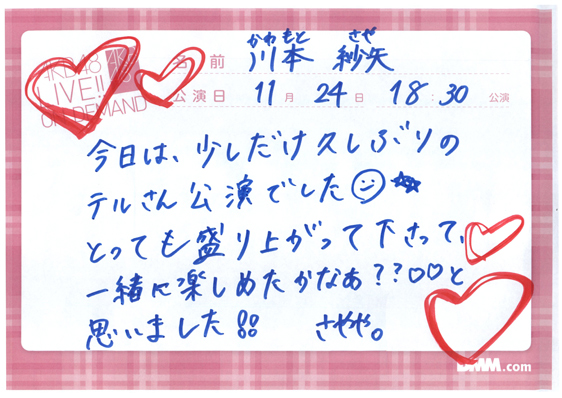 AKB48
LIVE!!
ON DEMAND
かわもと さや
名前 川本 紗矢
公演日 11月 24日 18:30 公演
今日は、少しだけ久しぶりの
テルさん公演でした
とっても盛り上がって下さって、
一緒に楽しめたかなぁ??♡♡と
思いました!! さやや。
DMM.com